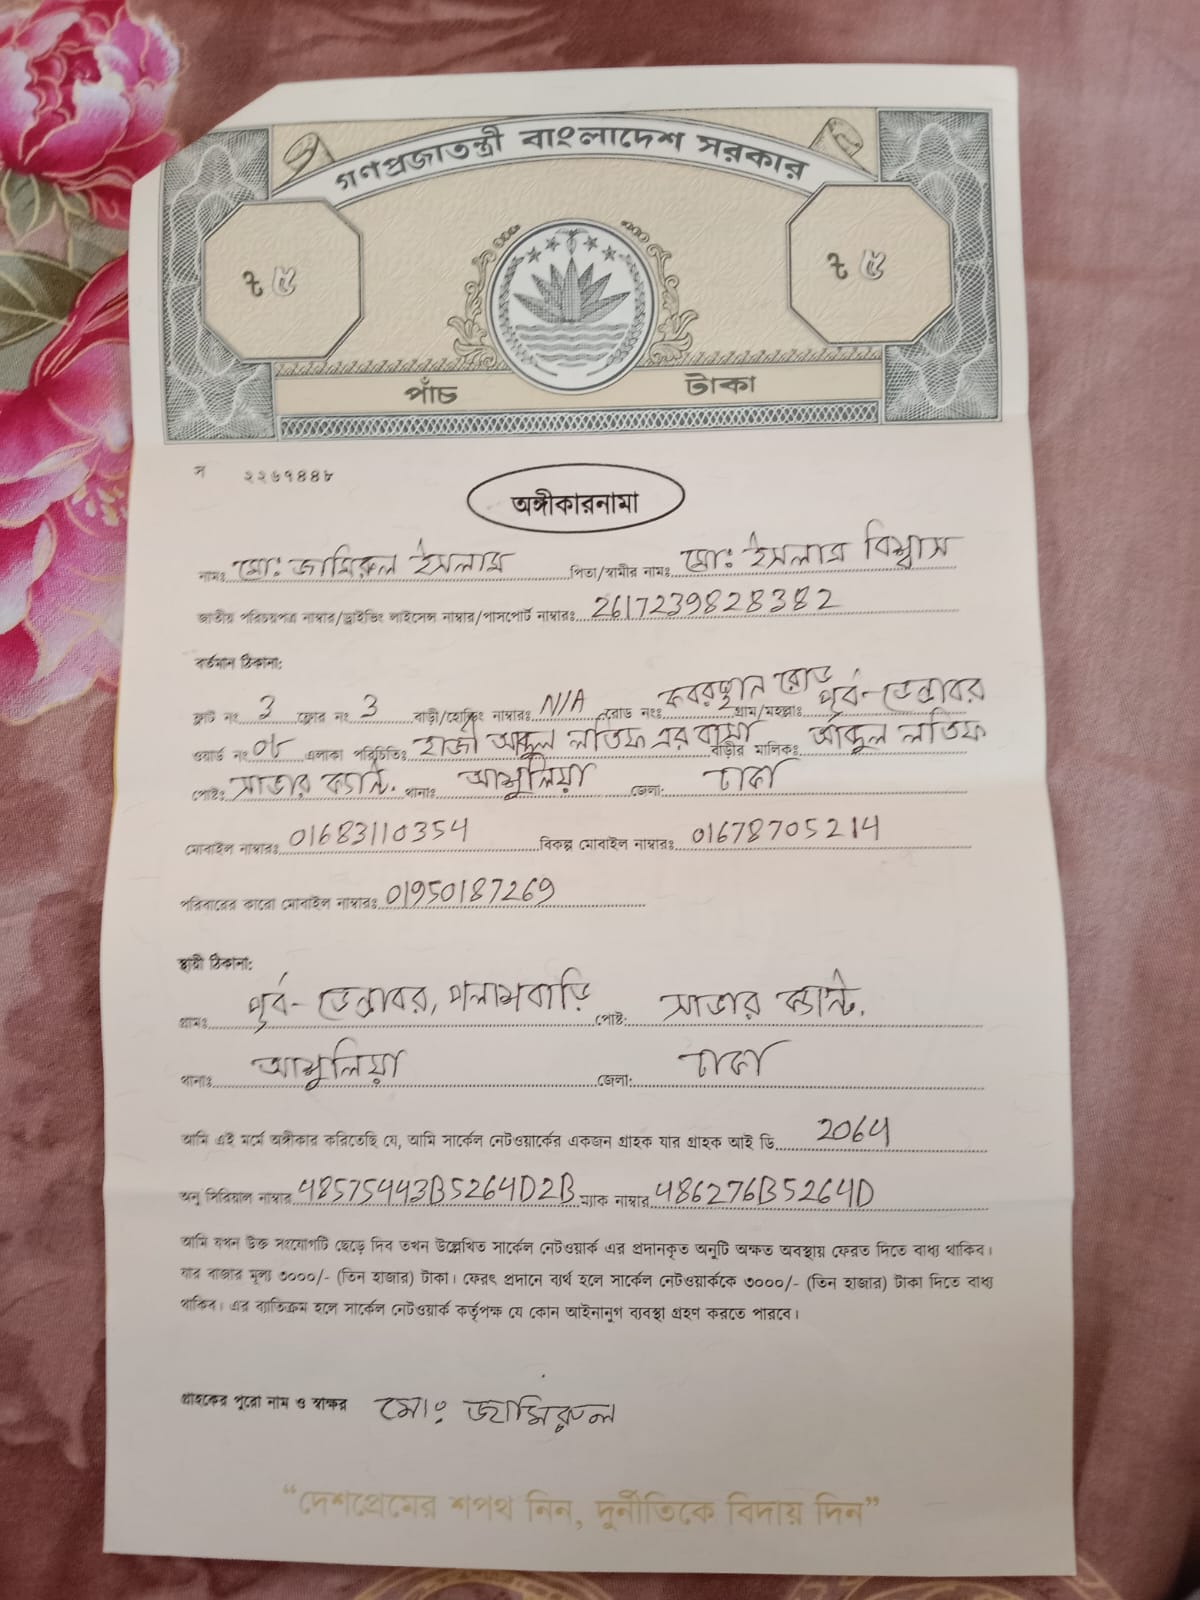 গণপ্রজাতন্ত্রী বাংলাদেশ সরকার
৳ ৫ ৳ ৫
পাঁচ টাকা
স ২২৬৭৪৪৮
অঙ্গীকারনামা
নামঃ মোঃ জামিরুল ইসলাম পিতা/স্বামীর নামঃ মোঃ ইসলাম বিশ্বাস
জাতীয় পরিচয়পত্র নাম্বার/ড্রাইভিং লাইসেন্স নাম্বার/পাসপোর্ট নাম্বারঃ 2617239828382
বর্তমান ঠিকানা:
ফ্লাট নং 3 ফ্লোর নং 3 বাড়ী/হোল্ডিং নাম্বারঃ N/A রোড নংঃ কবরস্থান রোড গ্রাম/মহল্লাঃ পূর্ব-ডেন্ডাবর
ওয়ার্ড নং ০৮ এলাকা পরিচিতিঃ হাজী আব্দুল লতিফ এর বাসা বাড়ীর মালিকঃ আব্দুল লতিফ
পোষ্টঃ সাভার ক্যান্ট. থানাঃ আশুলিয়া জেলা: ঢাকা
মোবাইল নাম্বারঃ 01683110354 বিকল্প মোবাইল নাম্বারঃ 01678705214
পরিবারের কারো মোবাইল নাম্বারঃ 01950187269
স্থায়ী ঠিকানা:
গ্রামঃ পূর্ব-ডেন্ডাবর, পলাশবাড়ি পোষ্ট: সাভার ক্যান্ট.
থানাঃ আশুলিয়া জেলা: ঢাকা
আমি এই মর্মে অঙ্গীকার করিতেছি যে, আমি সার্কেল নেটওয়ার্কের একজন গ্রাহক যার গ্রাহক আই ডি 2064
অনু সিরিয়াল নাম্বার 48575443B5264D2B ম্যাক নাম্বার 486276B5264D
আমি যখন উক্ত সংযোগটি ছেড়ে দিব তখন উল্লেখিত সার্কেল নেটওয়ার্ক এর প্রদানকৃত অনুটি অক্ষত অবস্থায় ফেরত দিতে বাধ্য থাকিব।
যার বাজার মূল্য ৩০০০/- (তিন হাজার) টাকা। ফেরৎ প্রদানে ব্যর্থ হলে সার্কেল নেটওয়ার্ককে ৩০০০/- (তিন হাজার) টাকা দিতে বাধ্য
থাকিব। এর ব্যতিক্রম হলে সার্কেল নেটওয়ার্ক কর্তৃপক্ষ যে কোন আইনানুগ ব্যবস্থা গ্রহণ করতে পারবে।
গ্রাহকের পুরো নাম ও স্বাক্ষর মোঃ জামিরুল
“দেশপ্রেমের শপথ নিন, দুর্নীতিকে বিদায় দিন”